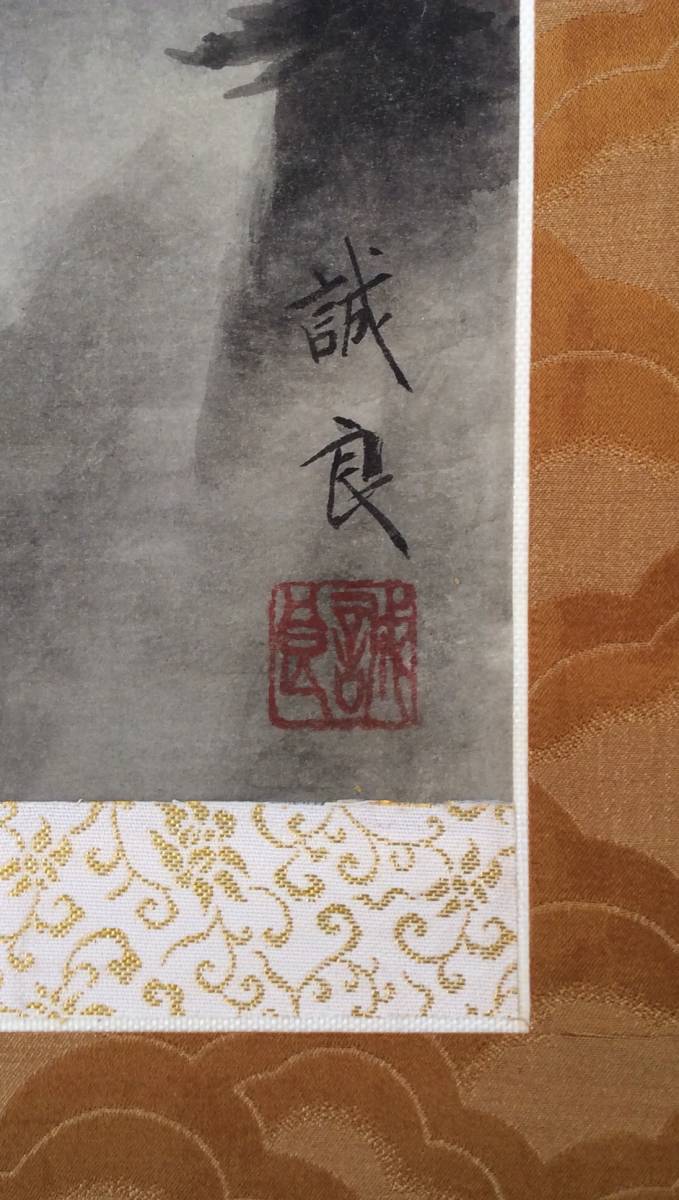 誠
良
誠良